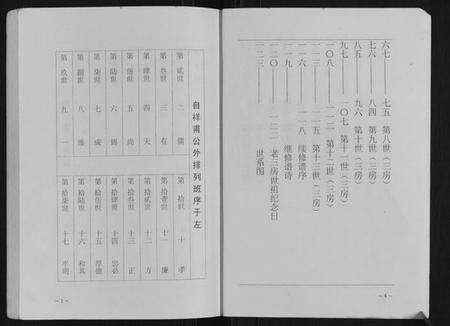 六七——七五 第八世（三房）
七六——八四 第九世（三房）
八五——九六 第十世（三房）
九七——一〇七 第十一世（三房）
一〇八——一一二 第十二世（三房）
一一三——一一五 第十三世（三房）
一一六——一一八 续修谱序
一一九 继修谱诗
一二〇——一二二 老三房世祖纪念日
一二三—— 世系图
－4－
自祥甫公外排列班序于左
第贰世 二 儒
第叁世 三 有
第肆世 四 天
第伍世 五 尚
第陆世 六
第柒世 七 成
第捌世 八
第玖世 九 一
第拾世 十 孝
第拾壹世 十一 廉
第拾贰世 十二 方
第拾叁世 十三 正
第拾肆世 十四 忠必
第拾伍世 十五 厚德
第拾陆世 十六 和其
第拾柒世 十七 平明
－1－